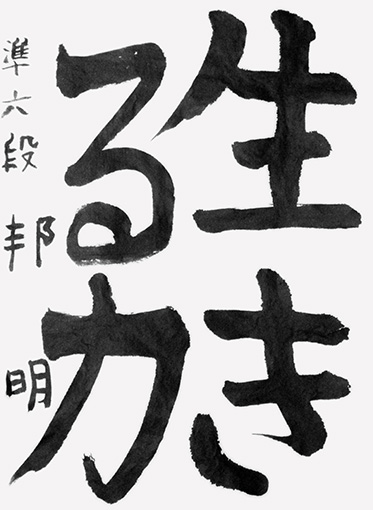 生き
る力
準六段 邦明